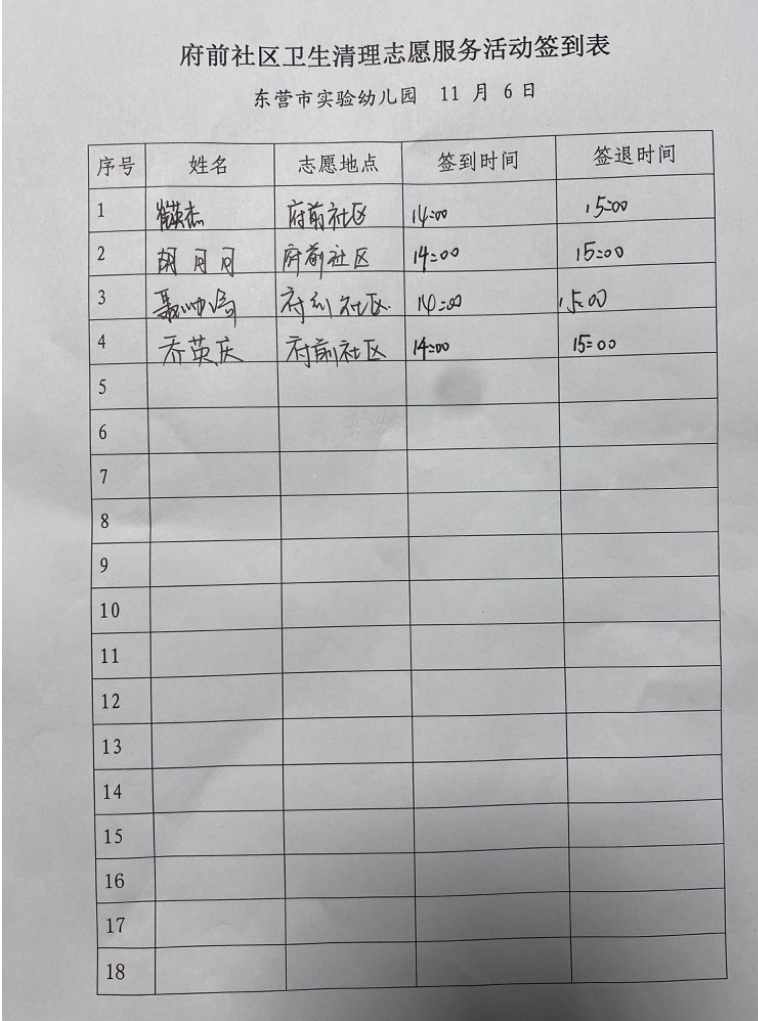 府前社区卫生清理志愿服务活动签到表
东营市实验幼儿园 11 月 6 日
序号 姓名 志愿地点 签到时间 签退时间
1 崔英杰 府前社区 14:00 15:00
2 胡月月 府前社区 14:00 15:00
3 府前社区 14:00 15:00
4 乔英庆 府前社区 14:00 15:00
5
6
7
8
9
10
11
12
13
14
15
16
17
18